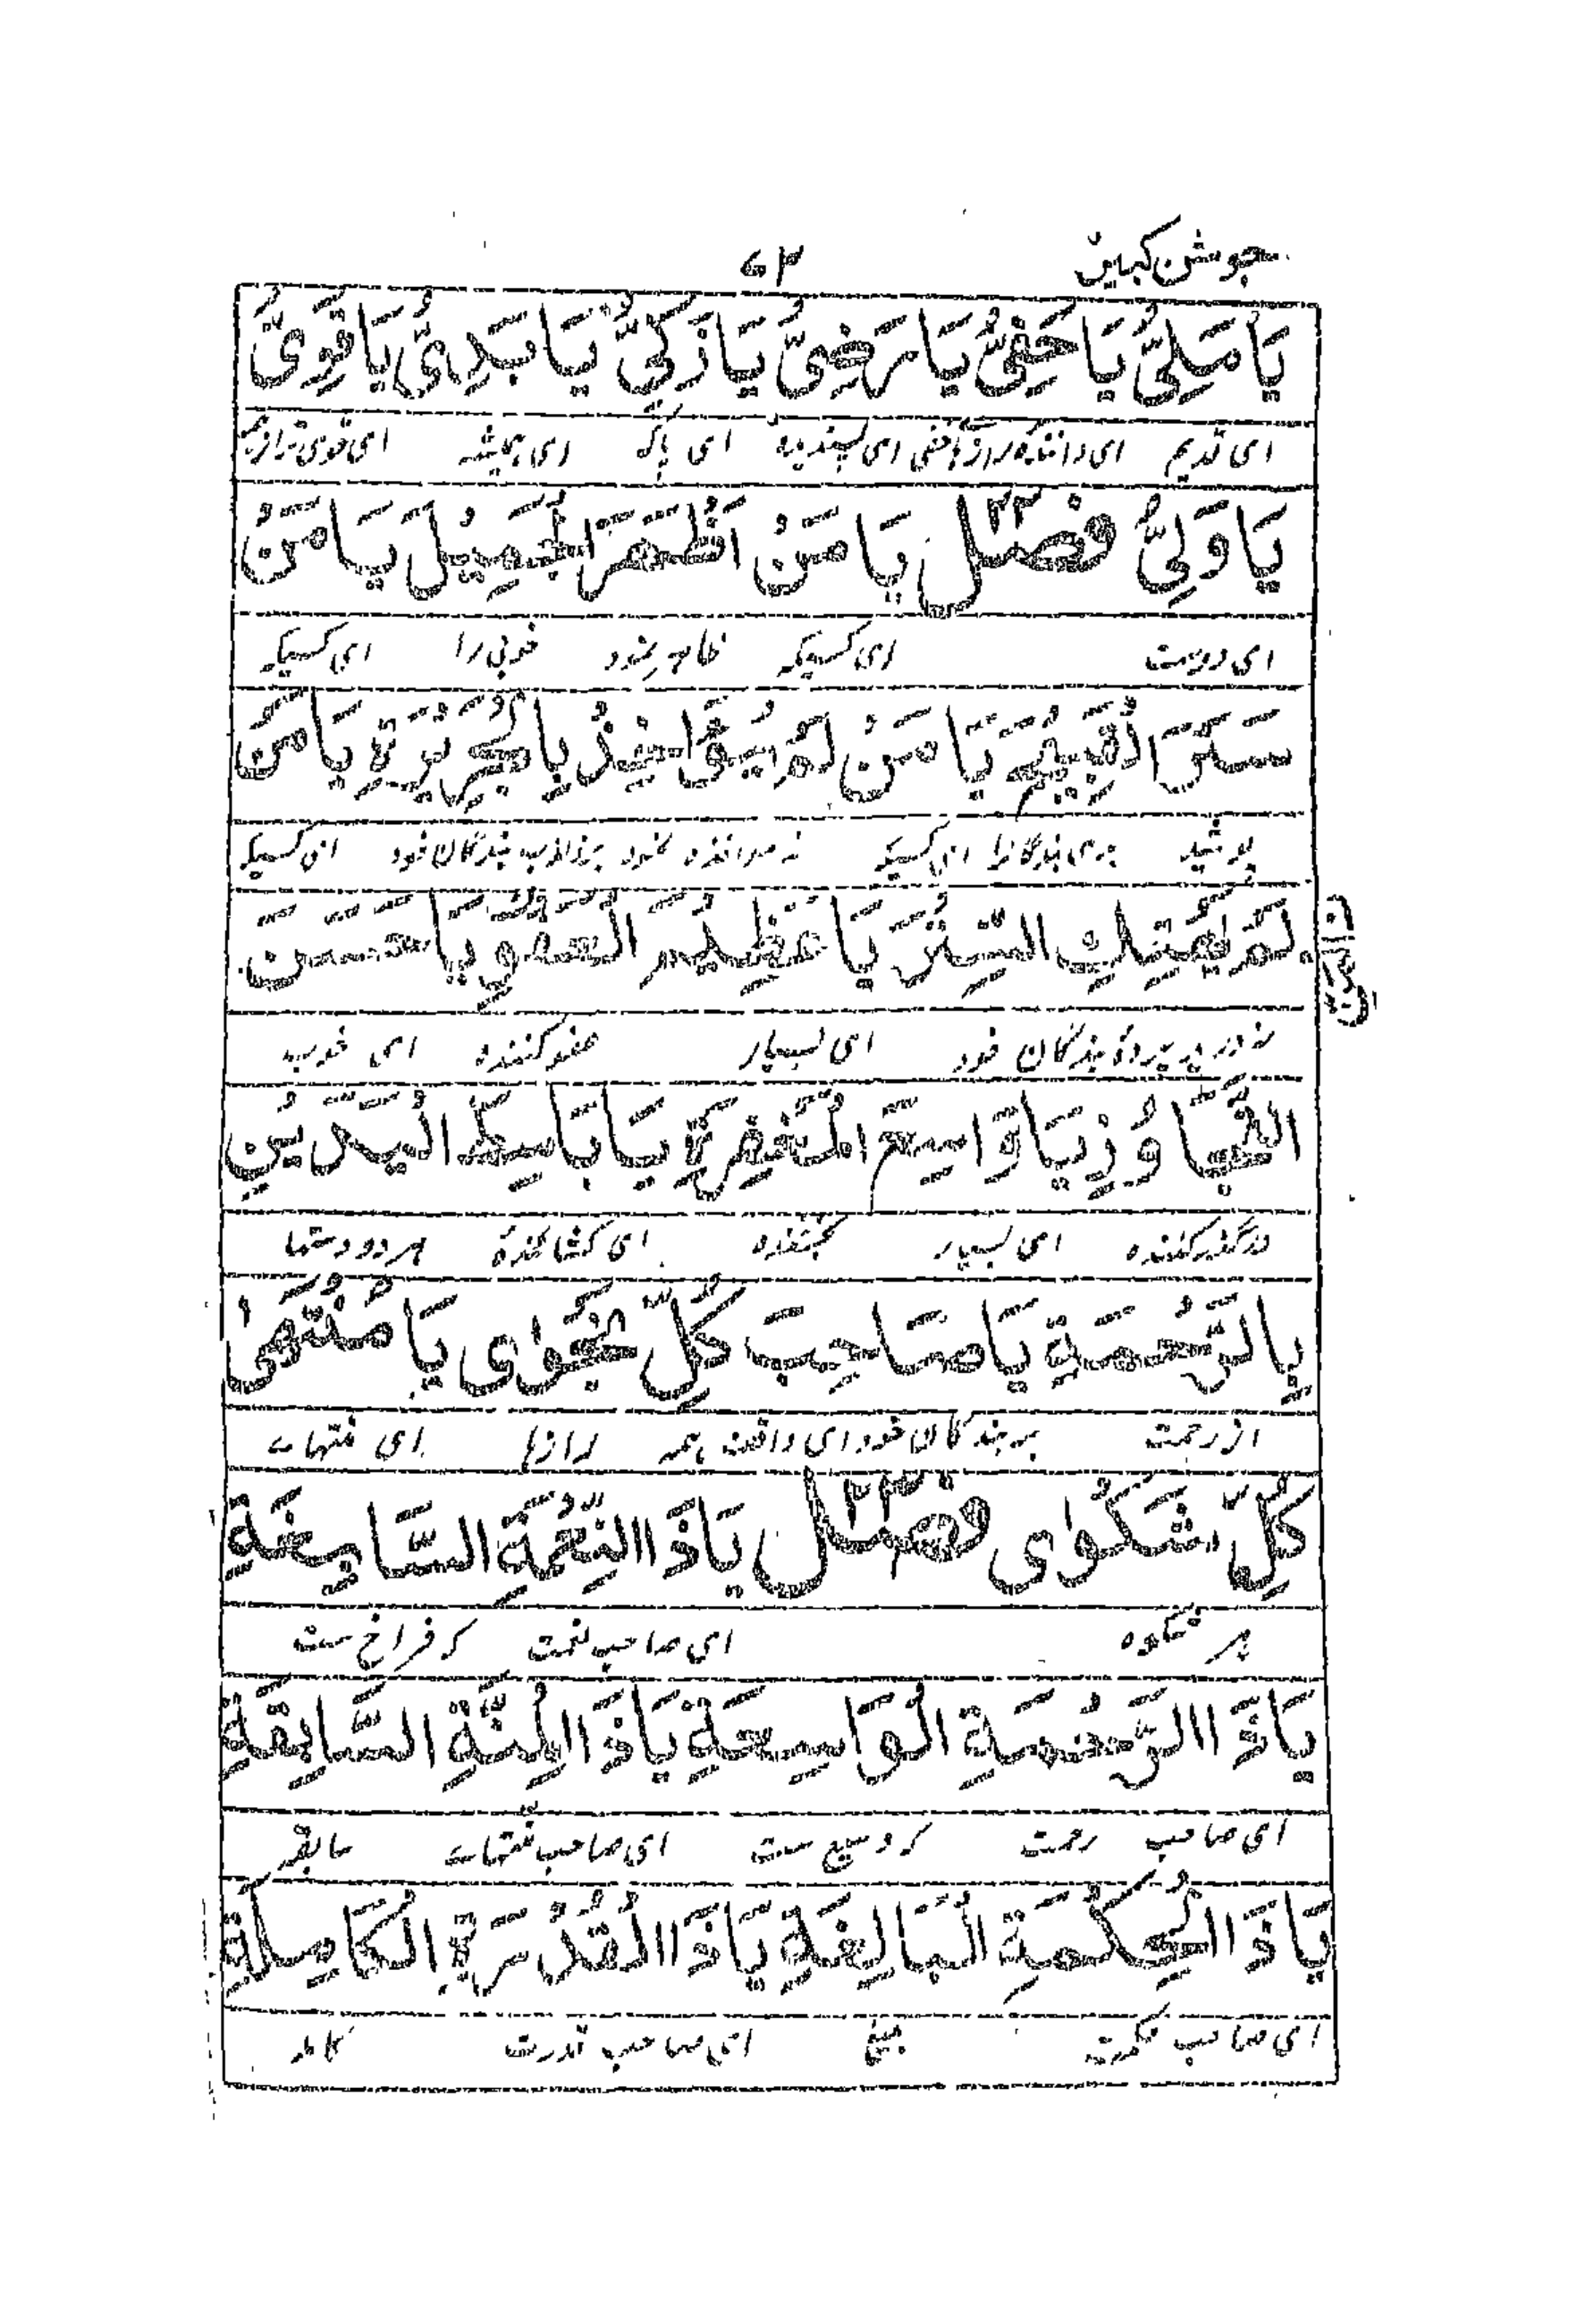 جوشن كبير
يَا مَلِيُّ يَا حَفِيُّ يَا رَضِيُّ يَا زَكِيُّ يَا بَدِيُّ يَا قَوِيُّ
ای قدیم ای داننده رازهای خفی ای پسندیده ای پاک ای همیشه ای قوی تر از همه
يَا وَلِيُّ فصل ٢٢ يَا مَنْ أَظْهَرَ الْجَمِيْلَ يَا مَنْ
ای دوست ای کسیکه ظاهر نمود خوبی را ای کسیکه
سَتَرَ الْقَبِيْحَ يَا مَنْ لَمْ يُؤَاخِذْ بِالْجَرِيْرَةِ يَا مَنْ
پوشید بدی بندگانرا ای کسیکه نه مواخذه نمود بندگان خود ای کسیکه
لَمْ يَهْتِكِ السِّتْرَ يَا عَظِيْمَ الْعَفْوِ يَا حَسَنَ
ندرید پرده بندگان خود ای بسیار عفو کننده ای خوب
التَّجَاوُزِ يَا وَاسِعَ الْمَغْفِرَةِ يَا بَاسِطَ الْيَدَيْنِ
درگذر کننده ای بسیار بخشنده ای کشاکنندهٔ هر دو دستها
بِالرَّحْمَةِ يَا صَاحِبَ كُلِّ نَجْوَاى يَا مُنْتَهٰى
از رحمت بر بندگان خود ای واقف همه رازها ای منتهای
كُلِّ شَكْوَاى فصل ٢٣ يَا ذَا النِّعْمَةِ السَّابِغَةِ
هر شکوه ای صاحب نعمت که فراخ ست
يَا ذَا الرَّحْمَةِ الْوَاسِعَةِ يَا ذَا الْمِنَّةِ السَّابِقَةِ
ای صاحب رحمت که وسیع ست ای صاحب منتهای سابقه
يَا ذَا الْحِكْمَةِ الْبَالِغَةِ يَا ذَا الْقُدْرَةِ الْكَامِلَةِ
ای صاحب حکمت بلیغ ای صاحب قدرت کامله